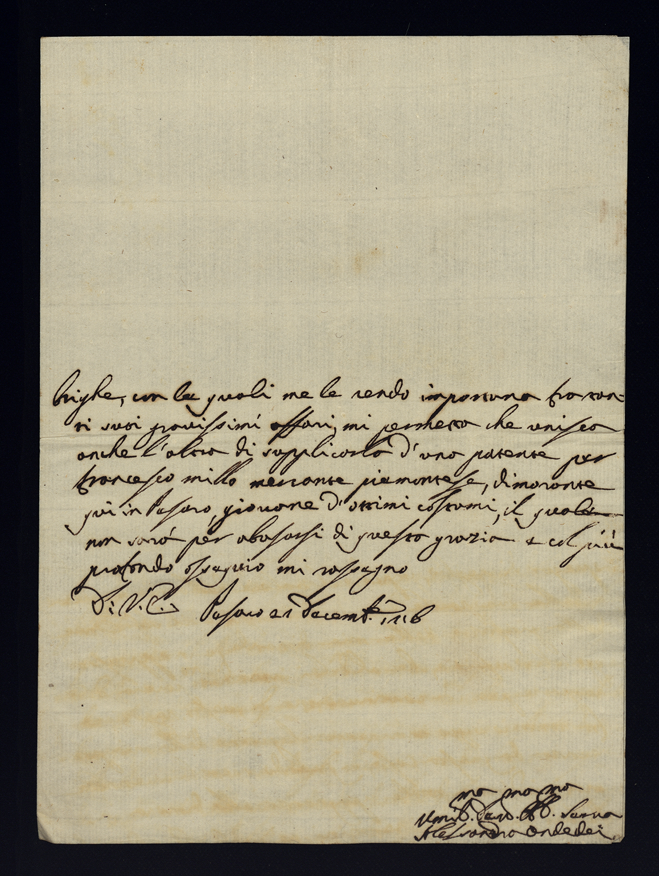 brighe, con le quali me le rendo importuna fra tan=
ti suoi gravissimi affari, mi permetta che unisca
anche l'altra di supplicarla d'una patente per
Francesco Millo mercante piemontese, dimorante
qui in Pesaro, giovane d'ottimi costumi, il quale
non sarà per abusarsi di questa grazia e col più
profondo ossequio mi rassegno
D: V. E.
Pesaro 21 Decemb.e
mo mo mo
Umil. Dev. Obb. Serva
Alessandra Ondedei